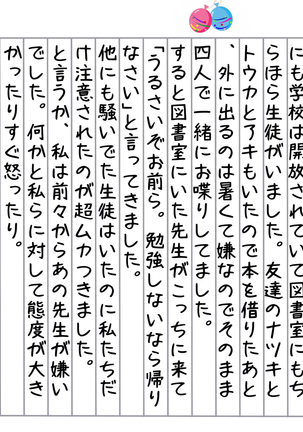 にも学校は開放されていて図書室にもち
らほら生徒がいました。友達のナツキと
トウカとアキもいたので本を借りたあと
、外に出るのは暑くて嫌なのでそのまま
四人で一緒にお喋りしてました。
すると図書室にいた先生がこっちに来て
「うるさいぞお前ら。勉強しないなら帰り
なさい」と言ってきました。
他にも騒いでた生徒はいたのに私たちだ
け注意されたのが超ムカつきました。
と言うか、私は前々からあの先生が嫌い
でした。何かと私らに対して態度が大き
かったりすぐ怒ったり。